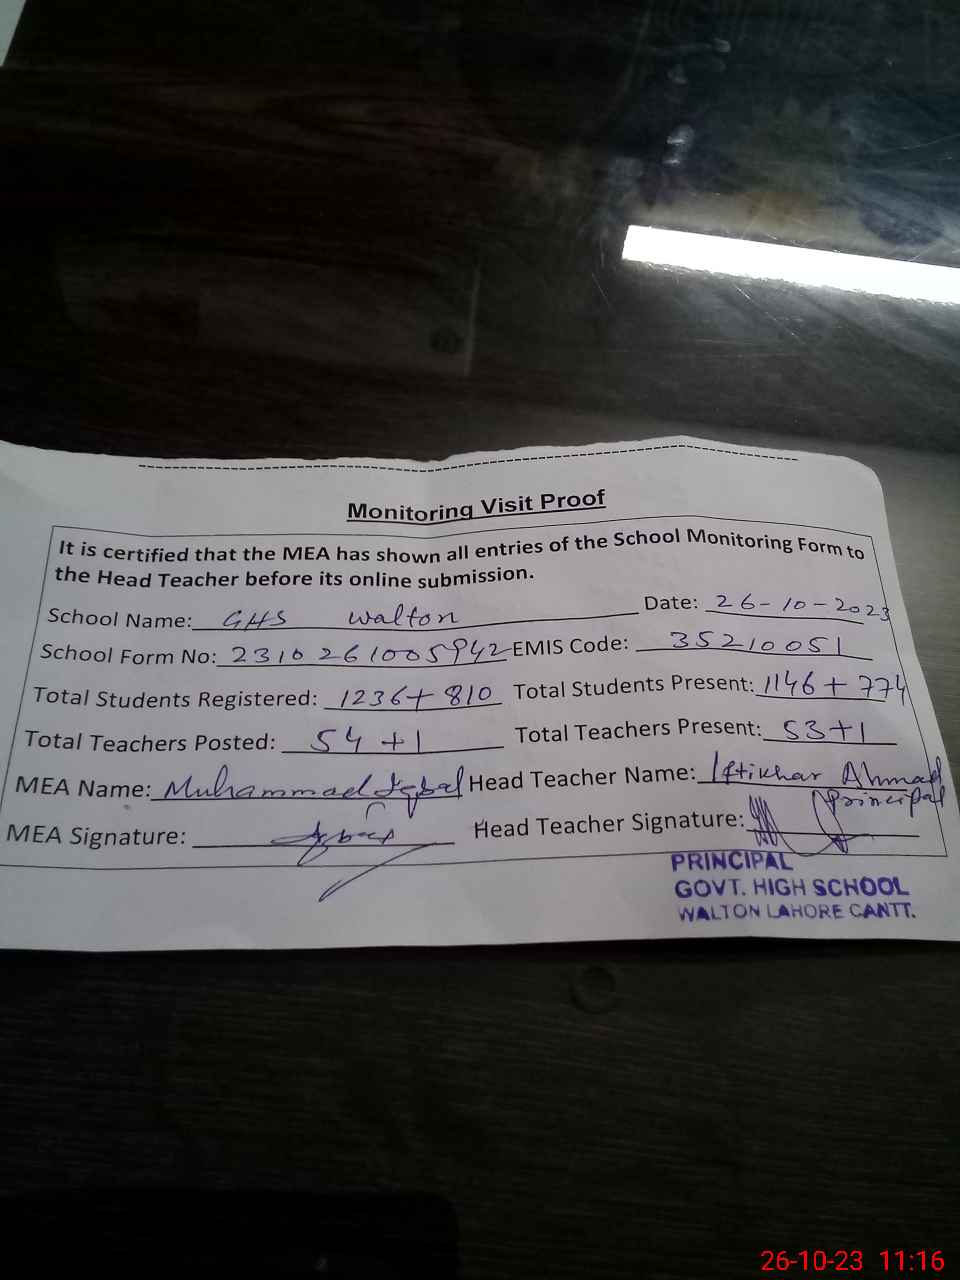 Monitoring Visit Proof
It is certified that the MEA has shown all entries of the School Monitoring Form to
the Head Teacher before its online submission.
School Name: GHS Walton Date: 26-10-2023
School Form No: 2310261005942 EMIS Code: 35210051
Total Students Registered: 1236+810 Total Students Present: 1146+774
Total Teachers Posted: 54+1 Total Teachers Present: 53+1
MEA Name: Muhammad Iqbal Head Teacher Name: Iftikhar Ahmad
Principal
MEA Signature: Iqbal Head Teacher Signature:
PRINCIPAL
GOVT. HIGH SCHOOL
WALTON LAHORE CANTT.
26-10-23 11:16